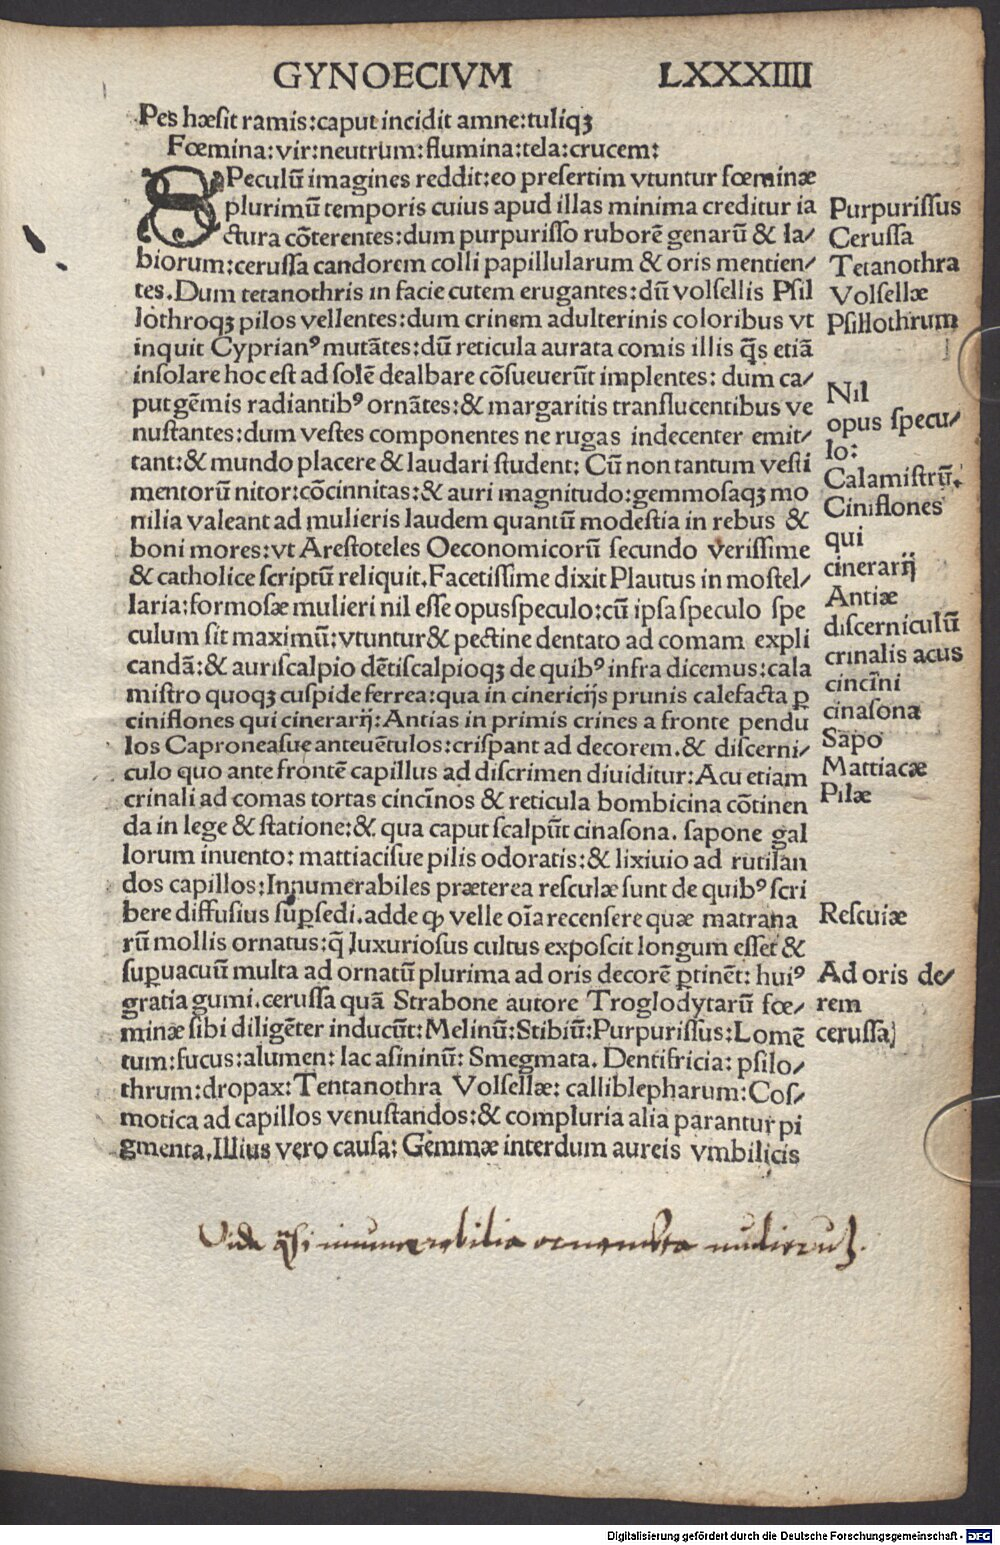 GYNOECIVM LXXXIIII
Pes hæſit ramis:caput incidit amne:tuliqꝫ
Fœmina:vir:neutrum:flumina:tela:crucem:
SPeculū imagines reddit:eo preſertim vtuntur fœminæ
plurimū temporis cuius apud illas minima creditur ia
ctura cōterentes:dum purpuriſſo ruborē genarū & la/
biorum:ceruſſa candorem colli papillularum & oris mentien/
tes.Dum tetanothris in facie cutem erugantes:dū volſellis Pſil
lothroqꝫ pilos vellentes:dum crinem adulterinis coloribus vt
inquit Cyprianꝰ mutātes:dū reticula aurata comis illis q̄s etiā
inſolare hoc eſt ad ſolē dealbare cōſueuerūt implentes: dum ca/
put gēmis radiantibꝰ ornātes:& margaritis tranſlucentibus ve
nuſtantes:dum veſtes componentes ne rugas indecenter emit/
tant:& mundo placere & laudari ſtudent: Cū non tantum veſti
mentorū nitor:cōcinnitas:& auri magnitudo:gemmoſaqꝫ mo
nilia valeant ad mulieris laudem quantū modeſtia in rebus &
boni mores:vt Areſtoteles Oeconomicorū ſecundo veriſſime
& catholice ſcriptū reliquit.Facetiſſime dixit Plautus in moſtel/
laria:formoſæ mulieri nil eſſe opus ſpeculo:cū ipſa ſpeculo ſpe
culum ſit maximū:vtuntur & pectine dentato ad comam expli
candā:& auriſcalpio dētiſcalpioqꝫ de quibꝰ infra dicemus:cala
miſtro quoqꝫ cuſpide ferrea:qua in cinericijs prunis calefacta ꝑ
ciniflones qui cinerarij:Antias in primis crines a fronte pendu
los Caproneaſue anteuētulos:criſpant ad decorem.& diſcerni/
culo quo ante frontē capillus ad diſcrimen diuiditur:Acu etiam
crinali ad comas tortas cincīnos & reticula bombicina cōtinen
da in lege & ſtatione:& qua caput ſcalpūt cinaſona. ſapone gal
lorum inuento: mattiaciſue pilis odoratis:& lixiuio ad rutilan
dos capillos:Innumerabiles præterea reſculæ ſunt de quibꝰ ſcri
bere diffuſius ſuꝑſedi.adde ꝙ velle oīa recenſere quæ matrana
rū mollis ornatus:q̄ luxurioſus cultus expoſcit longum eſſet &
ſuꝑuacuū multa ad ornatū plurima ad oris decorē ꝑtinēt: huiꝰ
gratia gumi.ceruſſa quā Strabone autore Troglodytarū fœ/
minæ ſibi diligēter inducūt:Melinū:Stibiū:Purpuriſſus:Lomē
tum:fucus:alumen: lac aſininū: Smegmata. Dentifricia: pſilo/
thrum:dropax: Tentanothra Volſellæ: calliblepharum:Coſ/
motica ad capillos venuſtandos:& compluria alia parantur pi
gmenta.Illius vero cauſa: Gemmæ interdum aureis vmbilicis
Purpuriſſus
Ceruſſa
Tetanothra
Volſellæ
Pſillothrum
Nil
opus ſpecu/
lo:
Calamiſtrū.
Ciniflones
qui
cinerarij
Antiæ
diſcerniculū
crinalis acus
cincīni
cinaſona
Sapo
Mattiacæ
Pilæ
Reſcuiæ
Ad oris de/
rem
ceruſſa
Vide innumerabilia ornamēta mulierū
Digitalisierung gefördert durch die Deutsche Forschungsgemeinschaft - DFG